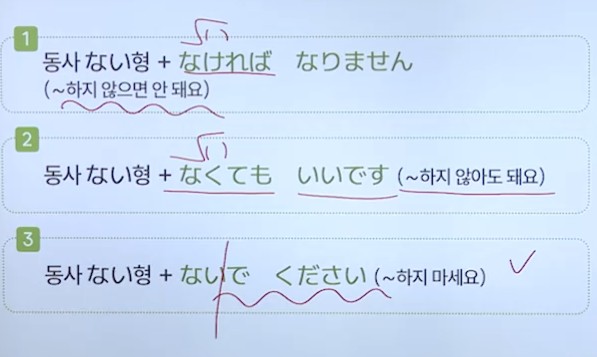 1
동사 ない형 + なければ なりません
(~하지 않으면 안 돼요)
2
동사 ない형 + なくても いいです (~하지 않아도 돼요)
3
동사 ない형 + ないで ください (~하지 마세요)